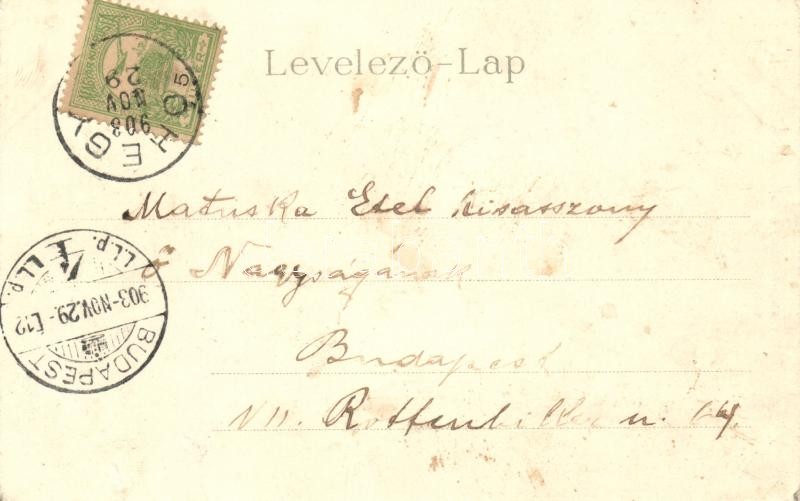 Levelező-Lap
903 NOV 29
Matuska Etel kisasszony
Ő Nagyságának
Budapest
VII. Rottenbiller u.
BUDAPEST
903-NOV.29.-É12
LL.P. 4 LL.P.